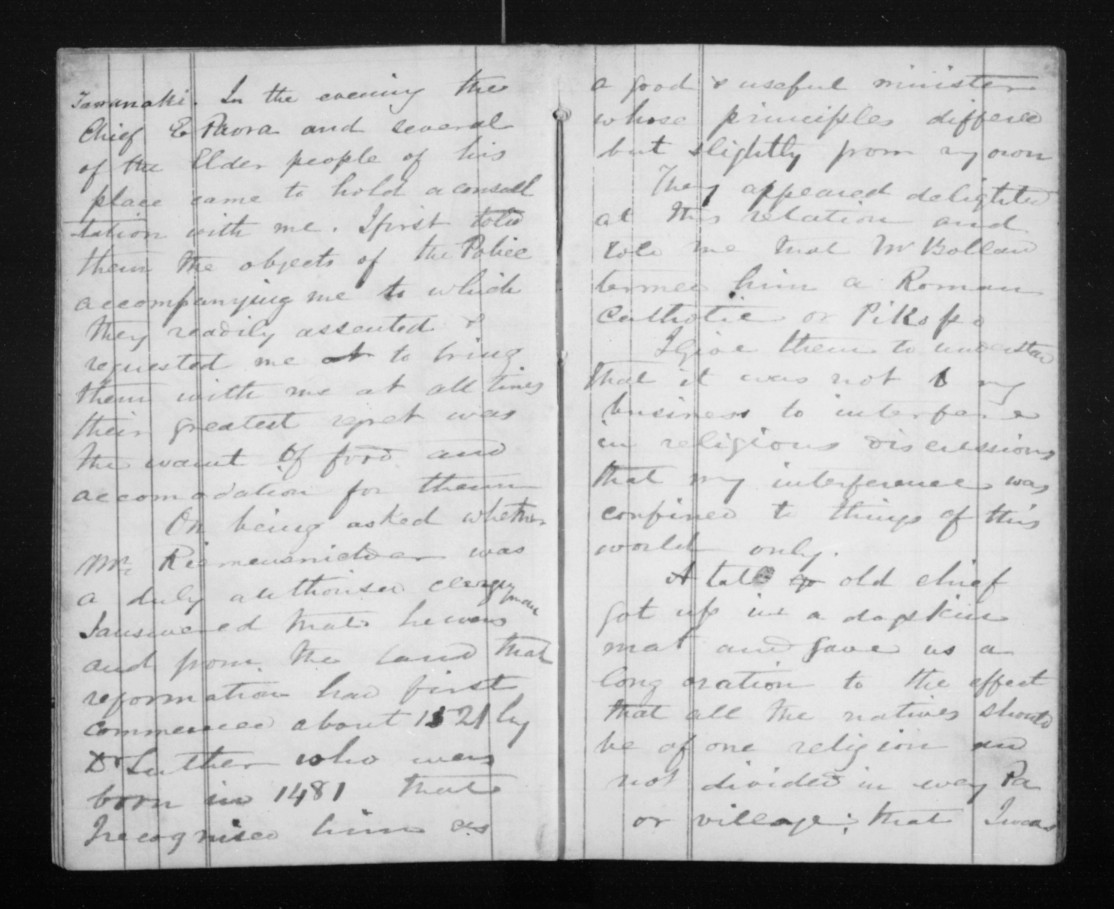 Taranaki. In the evening the
Chief E Paora and several
of the Elder people of his
place came to hold a consul
tation with me. I first told
them the objects of the Police
accompanying me to which
they readily assented &
requested me to bring
them with me at all times
their greatest regret was
the want of food and
accomodation for them
On being asked whether
Mr Riemenschneider was
a duly authorised clergyman
I answered that he was
and from the land that
reformation had first
commenced about 1521 by
Dr Luther who was
born in 1481 that
I recognised him as
a good & useful minister
whose principles differed
but slightly from my own
They appeared delighted
at this relation and
told me that Mr Bolland
termed him a Roman
Catholic or Pikopo
I give them to understand
that it was not my
business to interfere
in religious discussions
that my interference was
confined to things of this
world only.
A tall old chief
got up in a dogskin
mat and gave us a
long oration to the effect
that all the natives should
be of one religion and
not divided in every Pa
or village; that I was